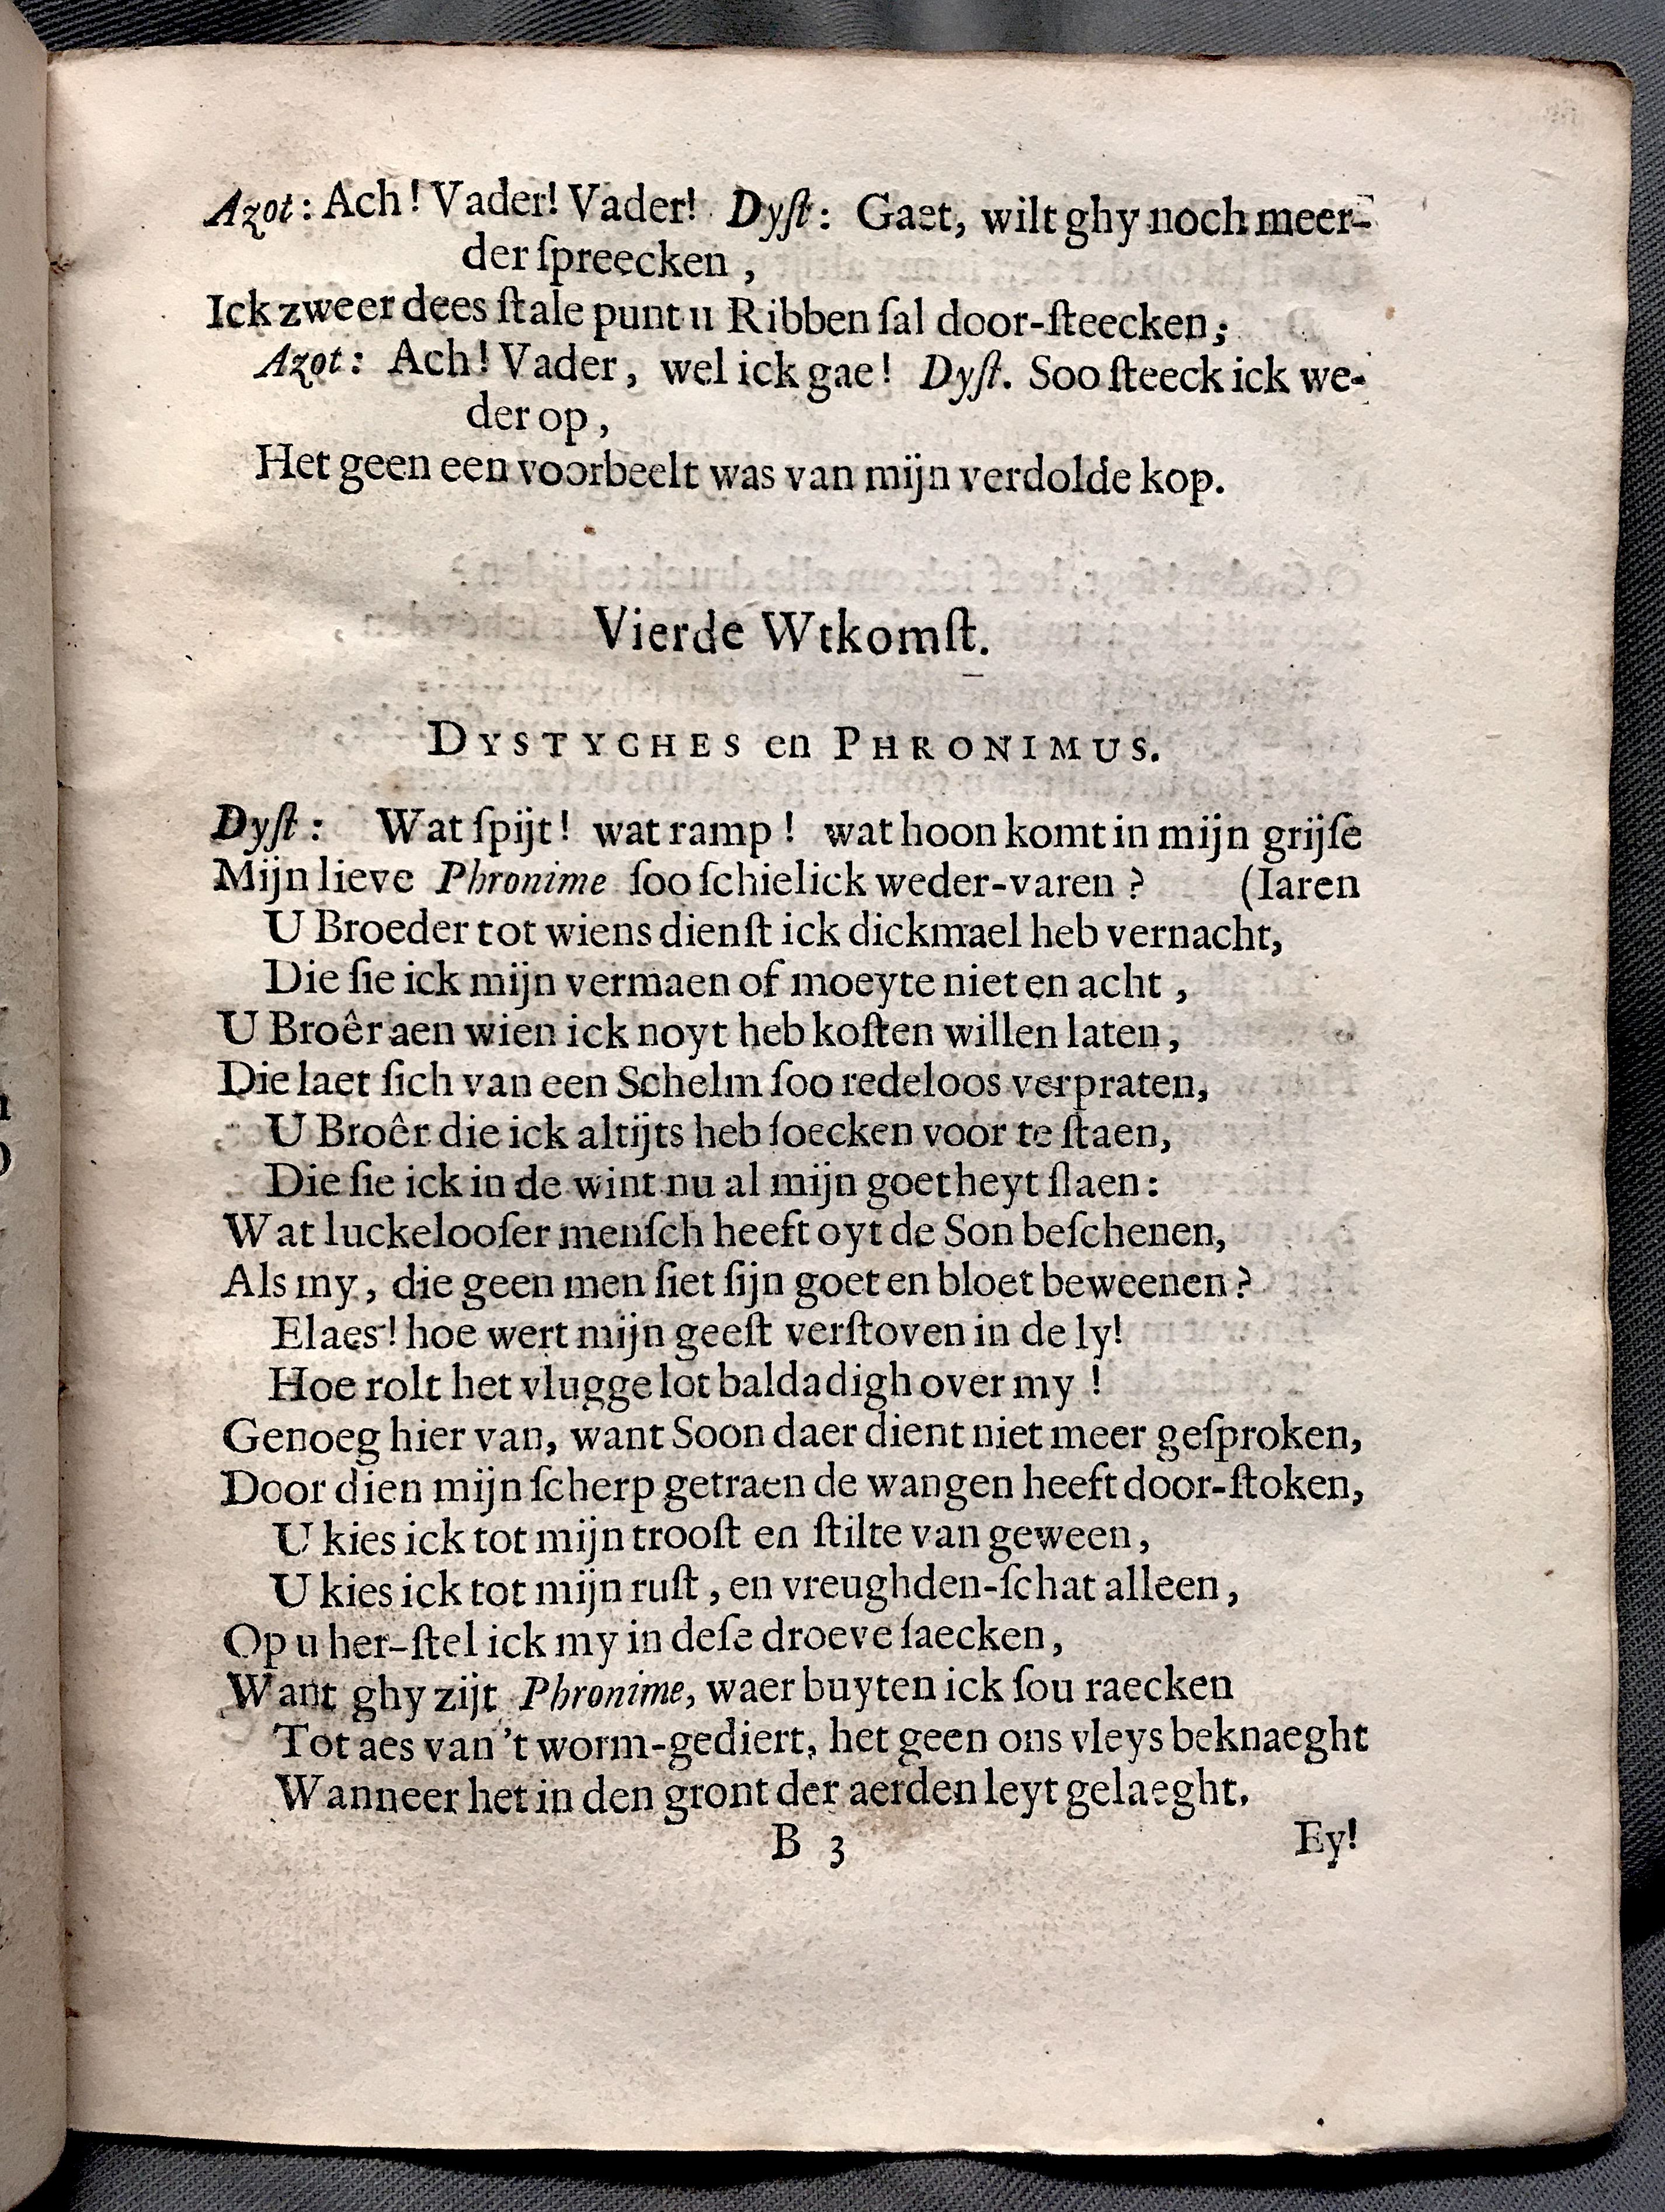 Azot: Ach! Vader! Vader! Dyſt: Gaet, wilt ghy noch meer-
der ſpreecken,
Ick zweer dees ſtale punt u Ribben ſal door-ſteecken;
Azot: Ach! Vader, wel ick gae! Dyſt. Soo ſteeck ick we-
der op,
Het geen een voorbeelt was van mijn verdolde kop.
Vierde Wtkomſt.
DYSTYCHES en PHRONIMUS.
Dyſt: Wat ſpijt! wat ramp! wat hoon komt in mijn grijſe
Mijn lieve Phronime ſoo ſchielick weder-varen? (Iaren
U Broeder tot wiens dienſt ick dickmael heb vernacht,
Die ſie ick mijn vermaen of moeyte niet en acht,
U Broêr aen wien ick noyt heb koſten willen laten,
Die laet ſich van een Schelm ſoo redeloos verpraten,
U Broêr die ick altijts heb ſoecken voor te ſtaen,
Die ſie ick in de wint nu al mijn goetheyt ſlaen:
Wat luckelooſer menſch heeft oyt de Son beſchenen,
Als my, die geen men ſiet ſijn goet en bloet beweenen?
Elaes! hoe wert mijn geeſt verſtoven in de ly!
Hoe rolt het vlugge lot baldadigh over my!
Genoeg hier van, want Soon daer dient niet meer geſproken,
Door dien mijn ſcherp getraen de wangen heeft door-ſtoken,
U kies ick tot mijn trooſt en ſtilte van geween,
U kies ick tot mijn ruſt, en vreughden-ſchat alleen,
Op u her-ſtel ick my in deſe droeve ſaecken,
Want ghy zijt Phronime, waer buyten ick ſou raecken
Tot aes van 't worm-gediert, het geen ons vleys beknaeght
Wanneer het in den gront der aerden leyt gelaeght.
B 3 Ey!